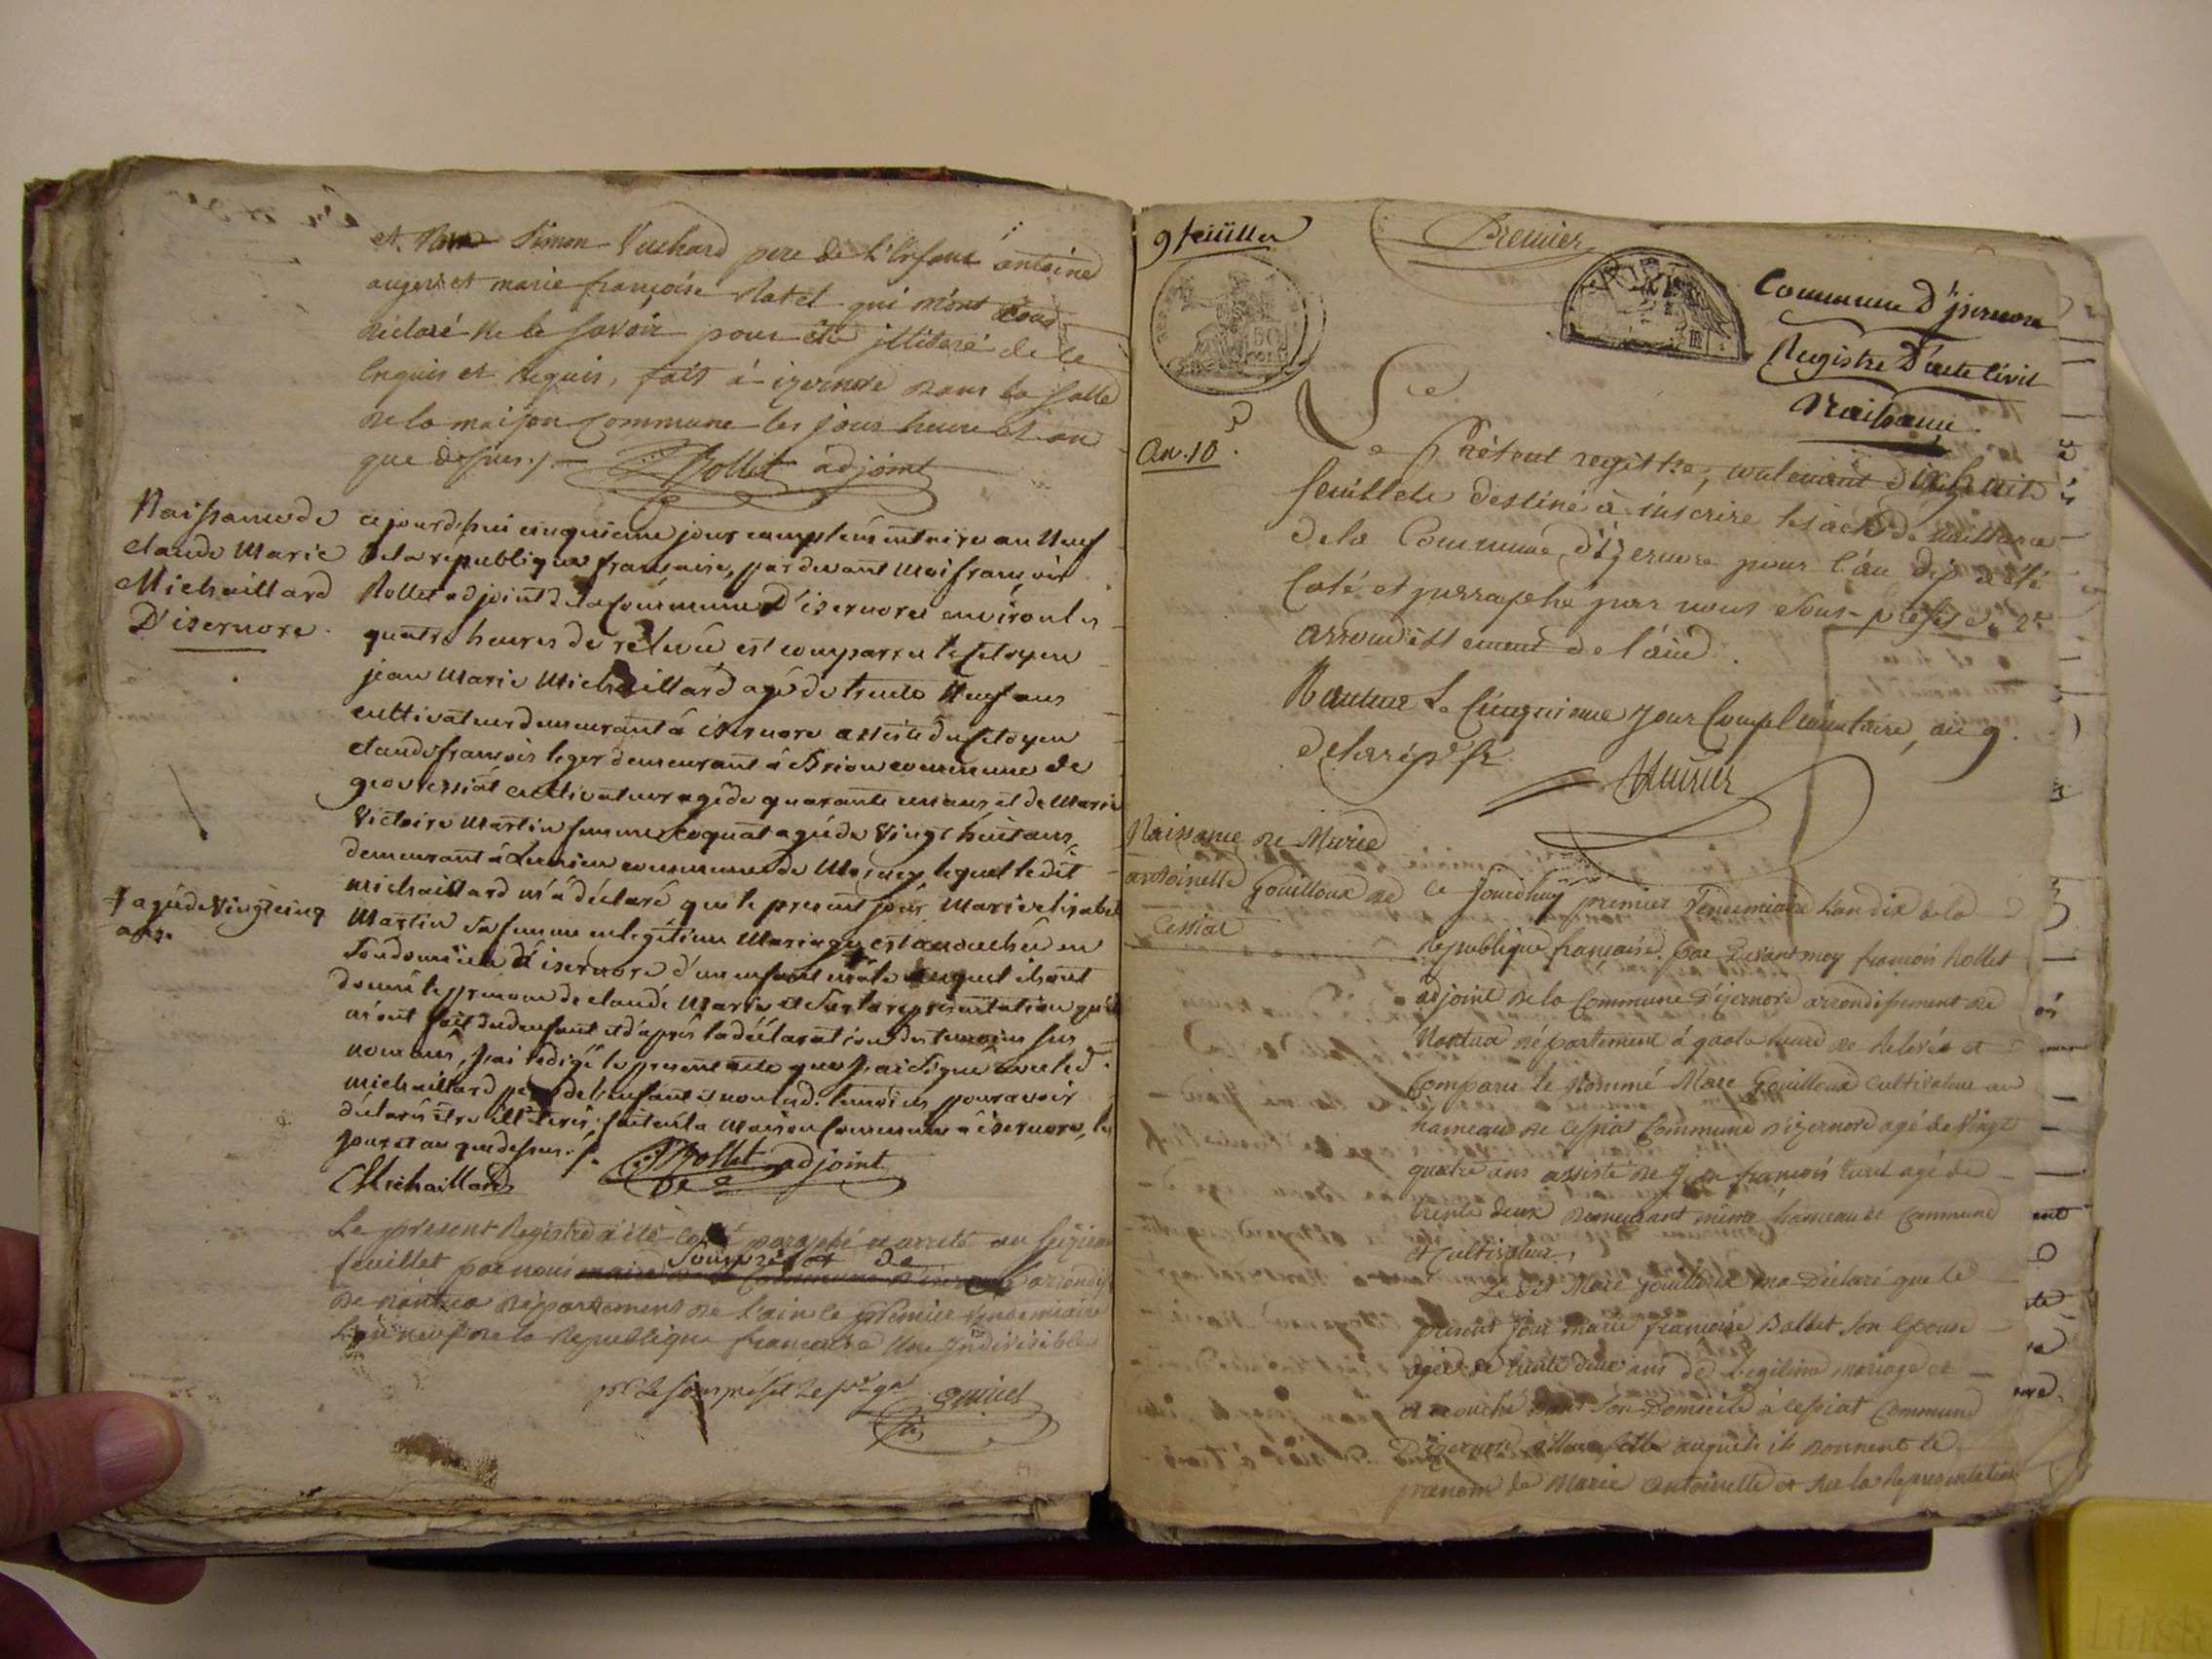 et Simon Vuchard pere de l'Enfant antoine
auger et marie françoise Ratel qui m'ont tous
déclaré ne le savoir pour être jlliteré de ce
Enquis et requis, fait à izernore dans la salle
de la maison commune les jour heure et an
que dessus ./. Rollet adjoint
Naissance de
claude Marie
Michaillard
D'isernore.
cejourdhui cinquieme jour complémentaire an Neuf
de la république française, pardevant Moi françois
Rollet adjoint de la Commune D'isernore environ les
quatre heures de relevée est comparru le Citoyen
jean Marie Michaillard agé de trente Neuf ans
cultivateur demeurant à isernore assisté du Citoyen
claude françois leger demeurant à Brion commune de
geovressiat cultivateur agé de quarante un ans et de Marie
Victoire Martin femme Coquat agée de Vingt huit ans,
demeurant à commune de lequel ledit
michaillard m'a déclaré que le present jour Marie elisabet
‡ agée de Vingt cinq
ans.
Martin sa femme en legitime Mariage est accouchée en
son domicile d'isernore d'un enfant mâle auquel ils ont
donné le prenom de claude Marie et sur la représentation qu'ils
m'ont fait dudenfant et d'après la déclaration des temoins sus
nommés, j'ai redigé le present acte que j'ai signé avec led.
michaillard pere de l'enfant et non lesd. temoins pour avoir
déclaré être illiterés, fait en la Maison Commune à isernore, les
jour et an que dessus ./.
Rollet adjoint
CMichaillard
Le present Registre a été coté paraphé et arreté au
feuillet par nous sous préfet de arrondis
de nantua departement de l'ain le premier Vendemiaire
L'an neuf de la Republique francaise Une Indivisible
pr Le sous préfet
9 feuilles
Premier
Commune d'jzernore
Registre D'acte Civil
Naissance
An. 10.
Le Présent registre, contenant dix huit
feuillets destiné à inscrire les actes de naissance
de la Commune d'izernore pour l'an dix a été
Coté et parraphé par nous Sous-préfet du 2e
arrondissement de l'ain.
Nantua Le Cinquieme Jour Complémentaire, an 9.
de la rép.e fr.
Naissance de Marie
antoinette Gouilloux de
Cessiat
Ce Jourdhuy premier Vendemiaire L'an dix de la
république française. Par Devant moy francois Rollet
adjoint de la Commune D'izernore arrondissement de
Nantua département à quatre heure de Relevée et
Comparu le Nommé Marc Gouilloux Cultivateur au
hameau de Cessiat Commune d'izernore agé de Vingt
quatre ans assisté de françois turel agé de
trente deux demeurant même hameau et Commune
et Cultivateur,
Ledit Marc gouilloux ma Déclaré que le
présent jour marie françoise Ballet son Epouse
agée de trente deux ans de legitime mariage et
accouché dans son Domicile à Cessiat Commune
D'izernore fille auquels ils donnent le
prénom de Marie Antoinette et sur la Représentation